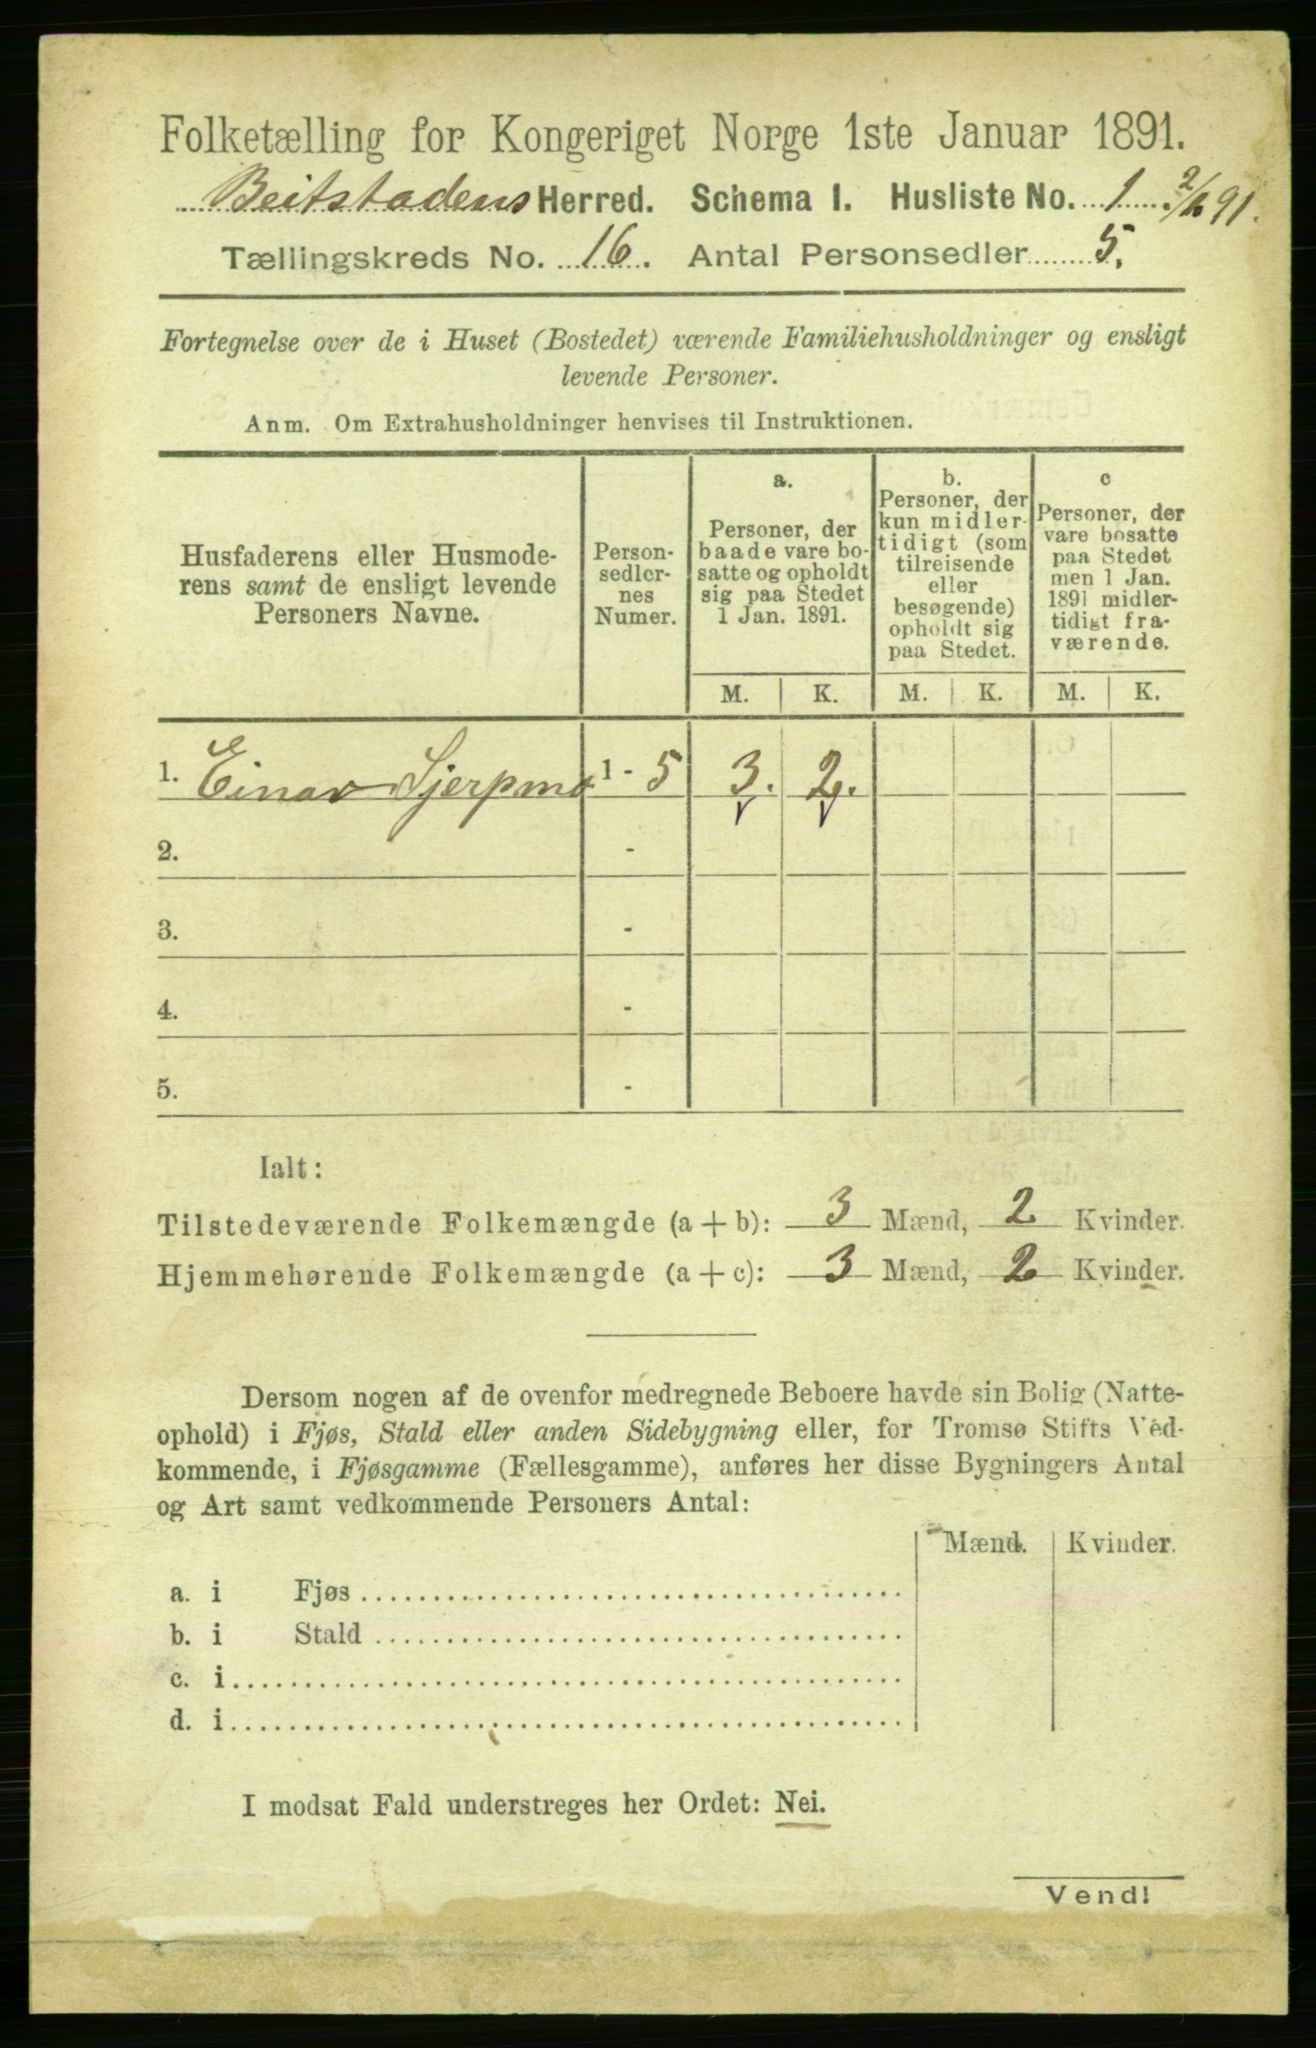 Folketælling for Kongeriget Norge 1ste Januar 1891.
Beitstadens Herred. Schema I. Husliste No. 1
Tællingskreds No. 16. Antal Personsedler 5.
Fortegnelse over de i Huset (Bostedet) værende Familiehusholdninger og ensligt
levende Personer.
Anm. Om Extrahusholdninger henvises til Instruktionen.
Husfaderens eller Husmode-
rens samt de ensligt levende
Personers Navne.
Person-
sedler-
nes
Numer.
a.
Personer, der
baade vare bo-
satte og opholdt
sig paa Stedet
1 Jan. 1891.
b.
Personer, der
kun midler-
tidigt (som
tilreisende
eller
besøgende)
opholdt sig
paa Stedet.
c
Personer, der
vare bosatte
paa Stedet
men 1 Jan.
1891 midler-
tidigt fra-
værende.
M. K. M. K. M. K.
1. Einar 1 - 5 3. 2.
2. -
3. -
4. -
5. -
Ialt:
Tilstedeværende Folkemængde (a + b): 3 Mænd, 2 Kvinder.
Hjemmehørende Folkemængde (a + c): 3 Mænd, 2 Kvinder.
Dersom nogen af de ovenfor medregnede Beboere havde sin Bolig (Natte-
ophold) i Fjøs, Stald eller anden Sidebygning eller, for Tromsø Stifts Ved-
kommende, i Fjøsgamme (Fællesgamme), anføres her disse Bygningers Antal
og Art samt vedkommende Personers Antal:
Mænd. Kvinder.
a. i Fjøs
b. i Stald
c. i
d. i
I modsat Fald understreges her Ordet: Nei.
Vend!